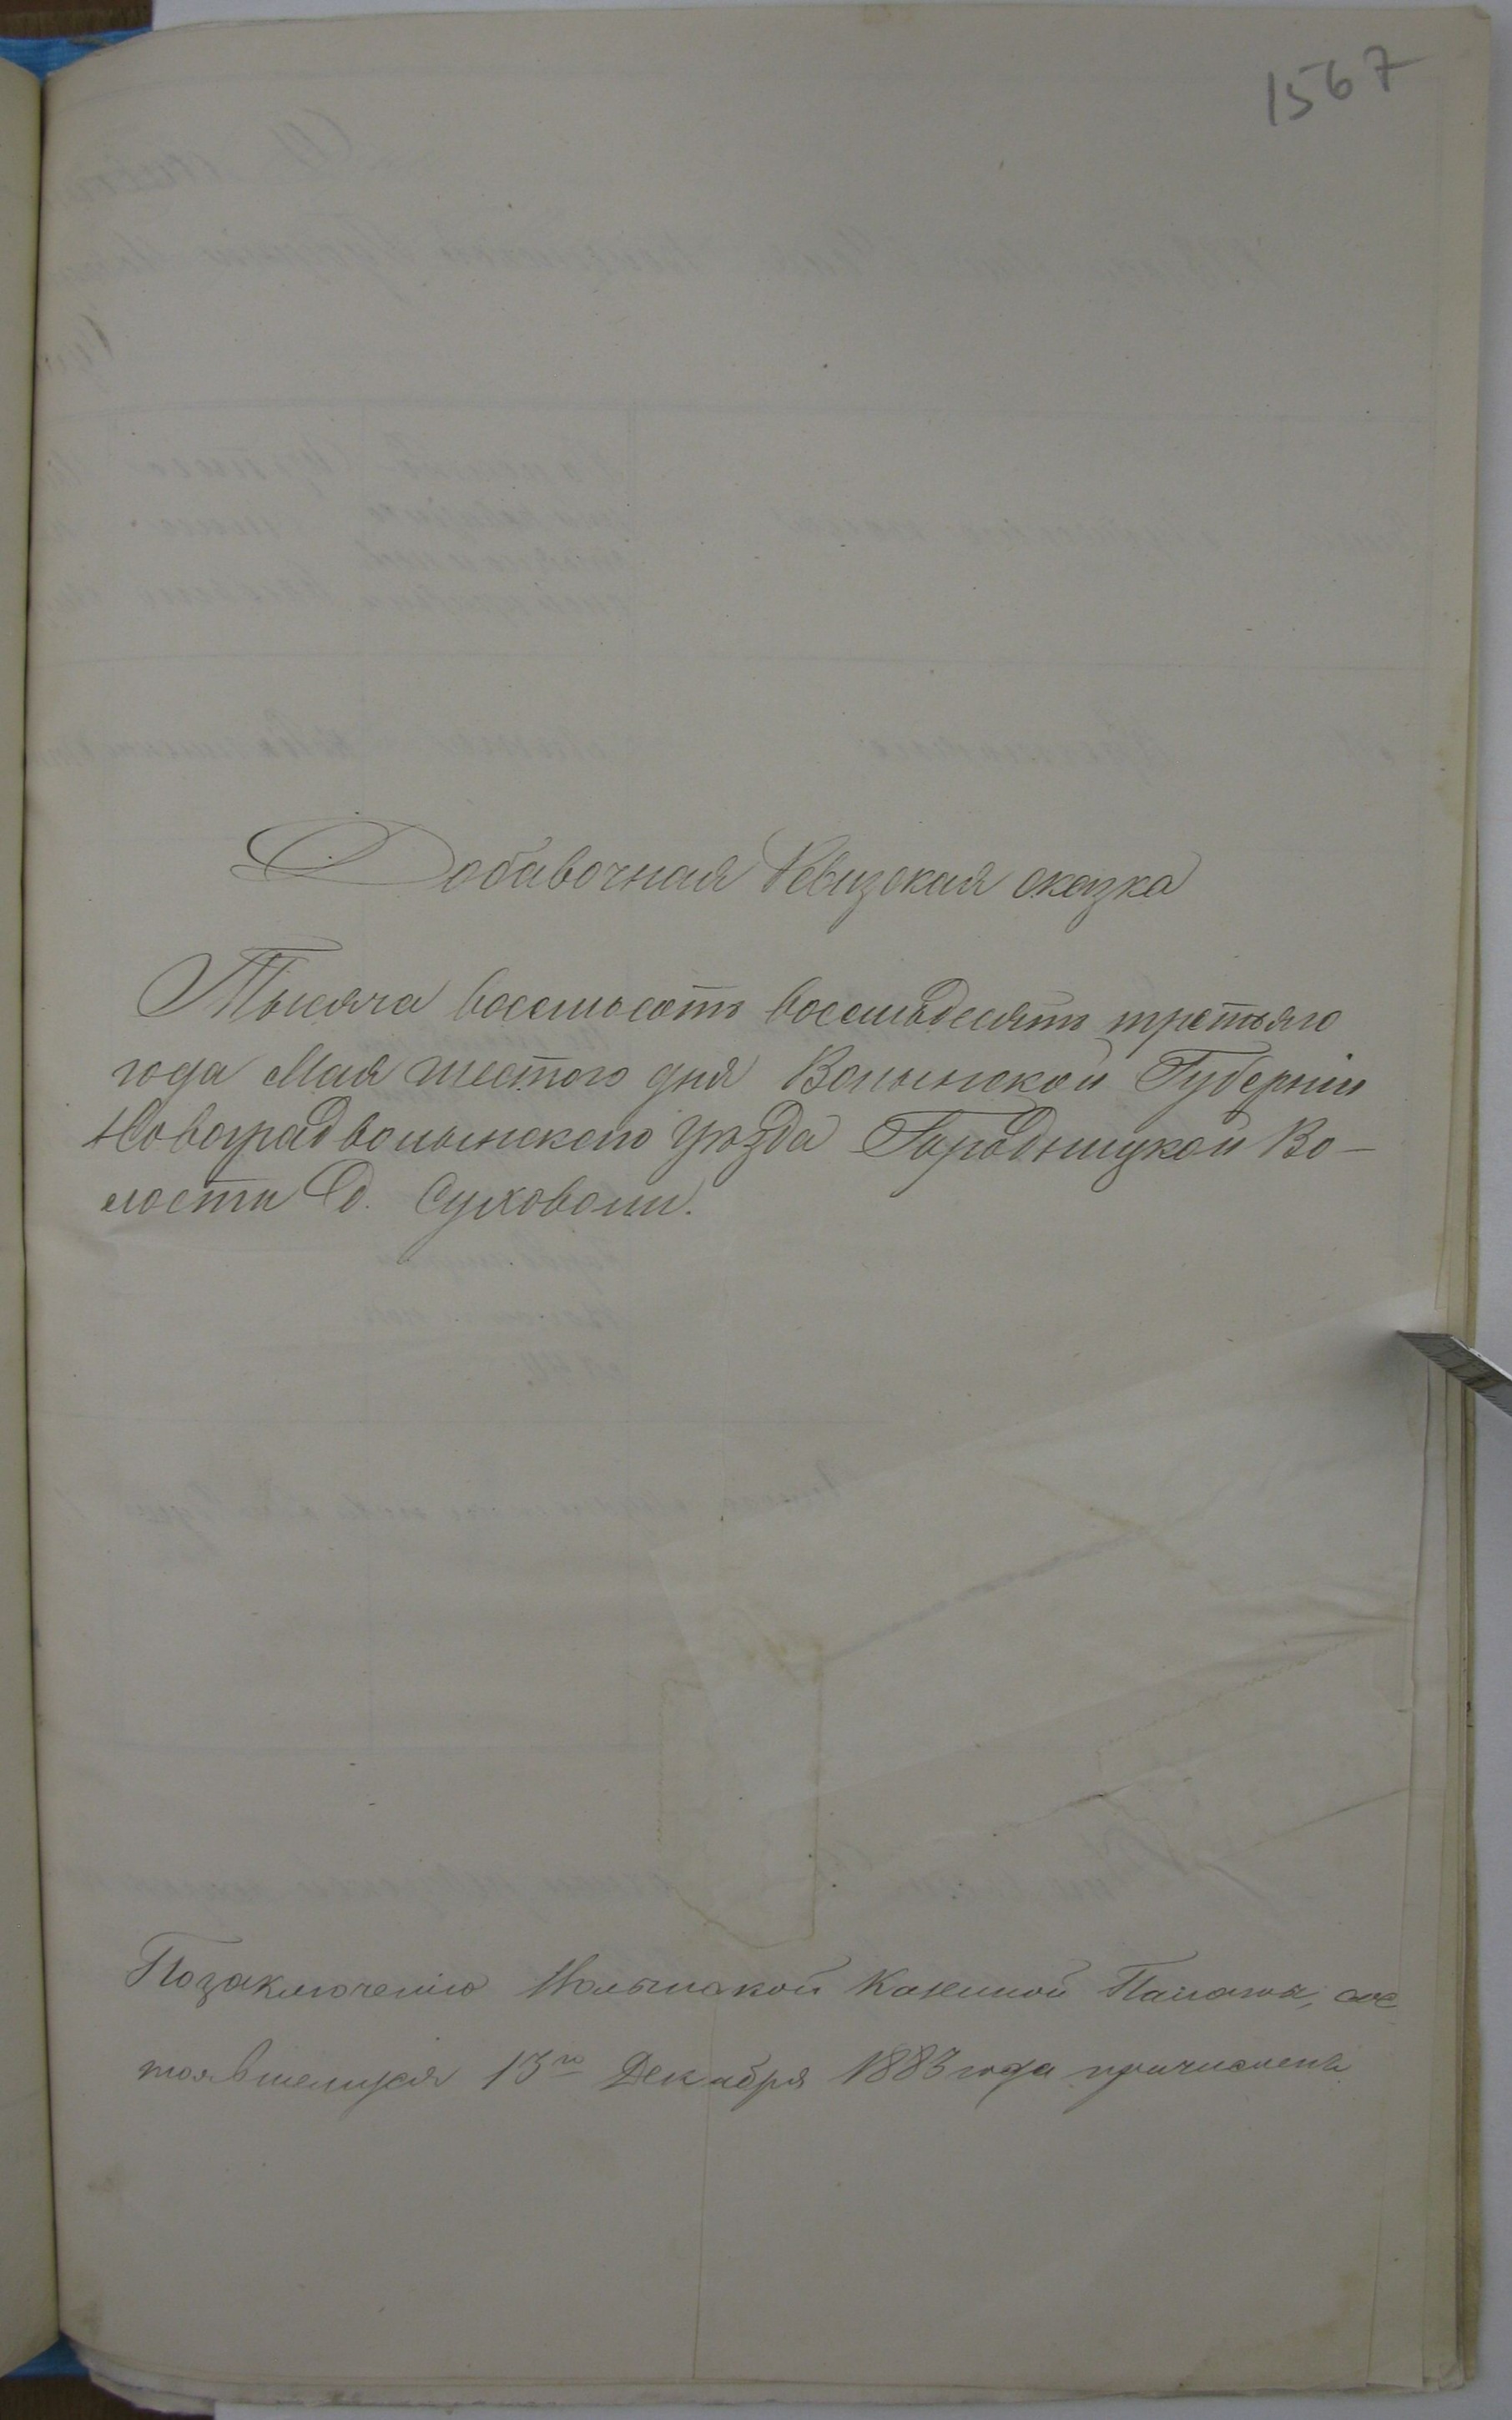 1567
Добавочная Ревизская сказка
Тысяча восемьсотъ восемьдесятъ третьяго
года Мая шестого дня Волынской Губерніи
Новоградволынскаго уѣзда Городницкой Во-
лости д. Суховоли.
По заключенію Волынской Казенной Палаты, сос
тоявшемуся 13го Декабря 1883 года причисленъ